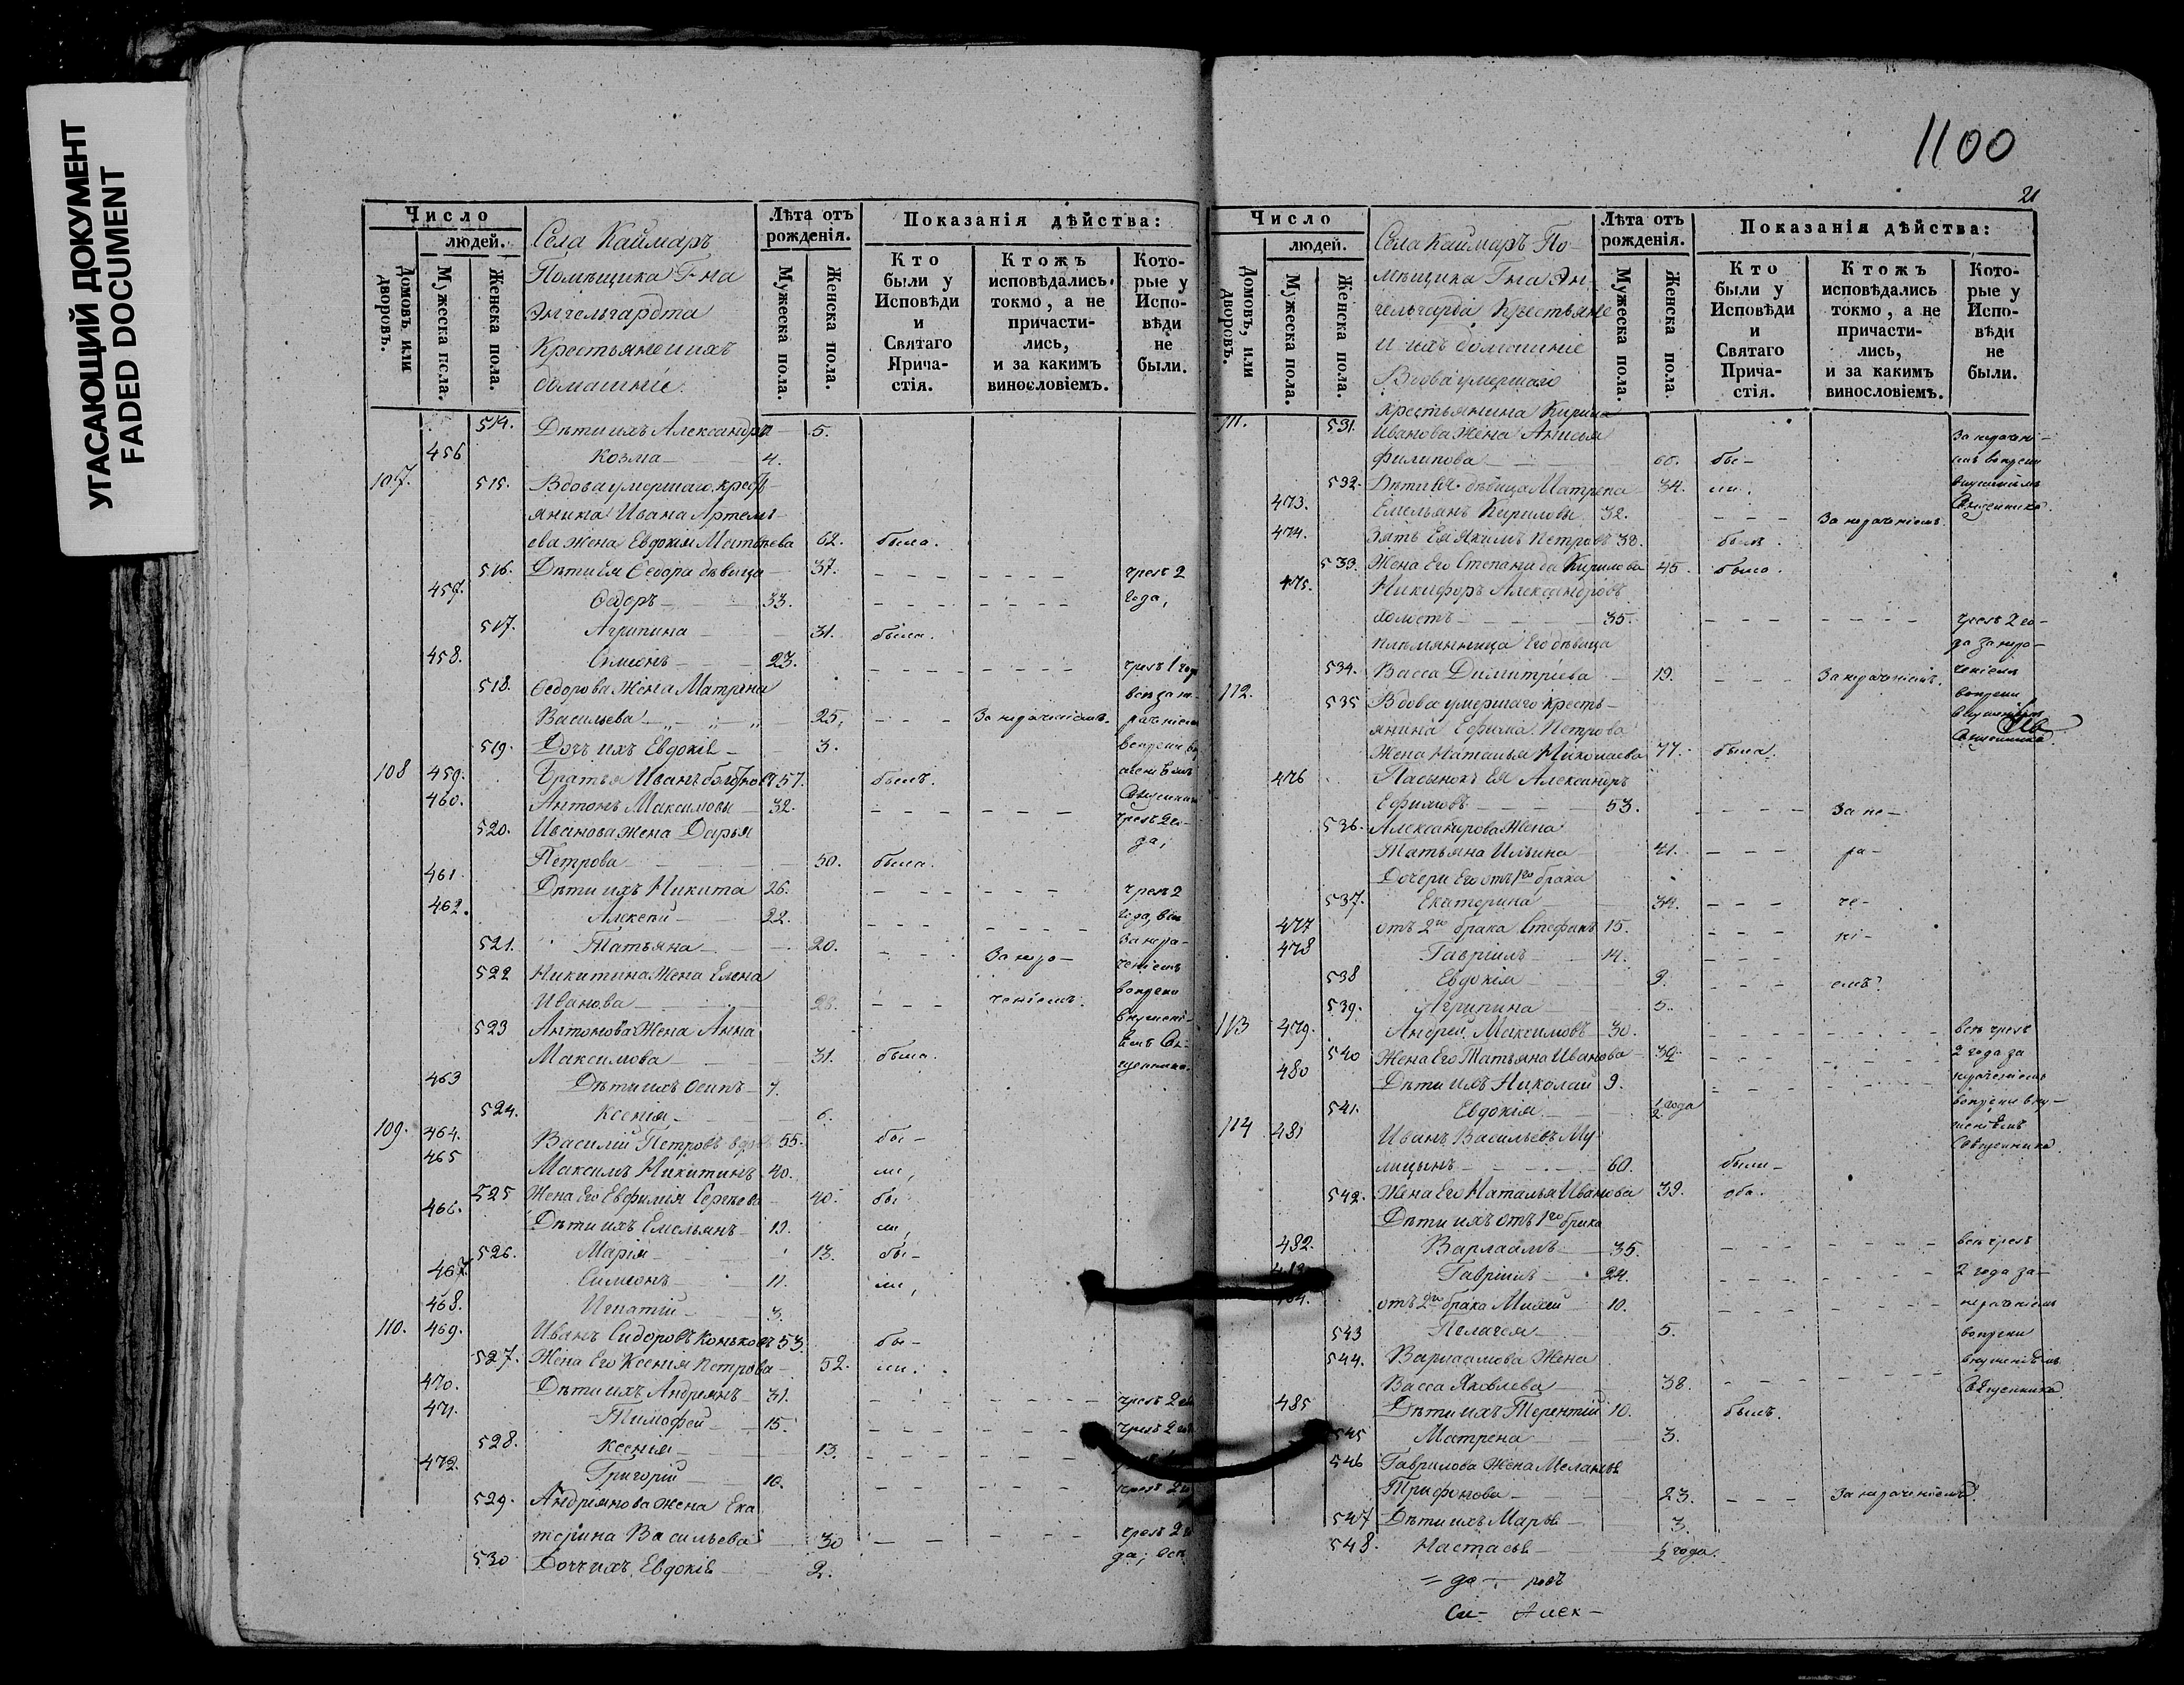 УГАСАЮЩИЙ ДОКУМЕНТ
FADED DOCUMENT
Число
людей.
Домовъ или дворовъ.
Мужеска пола.
Женска пола.
Села Каймаръ
Помѣщика Г-на
Энгельгардта
Крестьяне и ихъ
домашніе
Лѣта отъ рожденія.
Мужеска пола.
Женска пола.
Показанія дѣйства:
Кто были у Исповѣди и Святаго Прича-стія.
Ктожъ исповѣдались токмо, а не причасти-лись, и за какимъ винословіемъ.
Кото-рые у Испо-вѣди не были.
514. Дѣти ихъ Александра 5.
456 Козма 4.
107. 515. Вдова умершаго крест-
янина Ивана Артемь-
ева жена Евдокия Матвѣева 62. была.
516. Дѣти Ея Ѳедора дѣвица 37. чрезъ 2
457. Ѳедоръ 33. года,
517. Агрипина 31. была.
458. Симіонъ 23. чрезъ 1 годъ
518. Ѳедорова жена Матрена всѣ за не-
Васильева 25. За нераченіемъ раченіемъ
519. Дочь ихъ Евдокія 3. вопреки
108 459. Братья Иванъ 57. былъ.
460. Антонъ Максимовы 32.
520. Иванова жена Дарья чрезъ 2 го-
Петрова 50. была. да,
461. Дѣти ихъ Никита 26. чрезъ 2
462. Алексѣй 22. года, всѣ
521. Татьяна 20. За нера- За нера-
522 Никитина жена Елена ченіемъ
Иванова 28. ченіемъ. вопреки
523 Антонова жена Анна внушені-
Максимова 31. была. емъ Свя-
щенника.
463 Дѣти ихъ Осипъ 7.
524. Ксенія 6.
109. 464. Василій Петровъ вдов 55. бы-
465 Максимъ Никитинъ 40. ли,
525 Жена Его Евфимия Сергѣева 40. бы
466. Дѣти ихъ Емельянъ 19. ли,
526. Марія 13. бы-
467. Симіонъ 11. ли,
468. Игнатій 3.
110. 469. Иванъ Сидоровъ Коньковъ 53. бы-
527. Жена Его Ксенія Петрова 52. ли.
470. Дѣти ихъ Андреянъ 31. чрезъ 2
471. Тимофей 15. чрезъ 2
528. Ксенья 13.
472. Григорій 10. чрезъ 2
529. Андреянова жена Ека
терина Васильева 30 чрезъ 2 го
530 Дочь ихъ Евдокія 2. да; всѣ
1100
21
Число
людей.
Домовъ, или дворовъ.
Мужеска пола.
Женска пола.
Села Каймаръ По-
мѣщика Г-на Эн-
гельгарда Крестьяне
и ихъ домашніе
Вдова умершаго
Лѣта отъ рожденія.
Мужеска пола.
Женска пола.
Показанія дѣйства:
Кто были у Исповѣди и Святаго Прича-стія.
Ктожъ исповѣдались токмо, а не причасти-лись, и за какимъ винословіемъ.
Кото-рые у Испо-вѣди не были.
крестьянина Кирила
111. 531. Иванова жена Анисья За нерачені-
Филипова 60. бы- емъ вопреки
532. Дѣти Ея дѣвица Матрена 34. ли. внушеніямъ
473. Емельянъ Кириловы 32. За нераченіемъ. Священника.
474. Зять Ея Якимъ Петровъ 38. былъ.
533. Жена Его Степанида Кирилова 45. была.
475. Никифоръ Александровъ
холостъ 35. чрезъ 2 го-
племянница Его дѣвица да за нера-
534. Васса Димитріева 19. За нераченіемъ. ченіемъ
112. 535 Вдова умершаго кресть- вопреки
янина Ефима Петрова
Жена Наталья Николаева 77. была. Священника.
476 Пасынокъ Ея Александръ
Ефимовъ 53. За не-
536. Александрова Жена
Татьяна Ильина 41. ра-
Дочери Его отъ 1го брака
537. Екатерина 34. че-
477 отъ 2го брака Стефанъ 15. ні-
478 Гавріилъ 14.
538 Евдокія 9. емъ
539. Агрипина 5.
113 479. Андрей Максимовъ 30. всѣ чрезъ
540 Жена Его Татьяна Иванова 32. 2 года за
480 Дѣти ихъ Николай 9. нераченіемъ
541. Евдокія 1/2 года вопреки вну-
114 481 Иванъ Васильевъ Му- шеніямъ
лицынъ 60. были Священника
542. Жена Его Наталья Иванова 39. оба.
Дѣти ихъ отъ 1го брака
482. Варлаамъ 35. всѣ чрезъ
Гавріилъ 24. 2 года за-
отъ 2го брака Михей 10. нераченіемъ
543 Пелагея 5. вопреки
544. Варлаамова Жена внушеніямъ
Васса Яковлева 38. Священника
485 Дѣти ихъ Терентій 10. былъ.
545 Матрена 3.
546 Гаврилова Жена Меланья
Трифонова 23. За нераченіемъ.
547 Дѣти ихъ Марья 3.
548. Настасья 1/2 года.